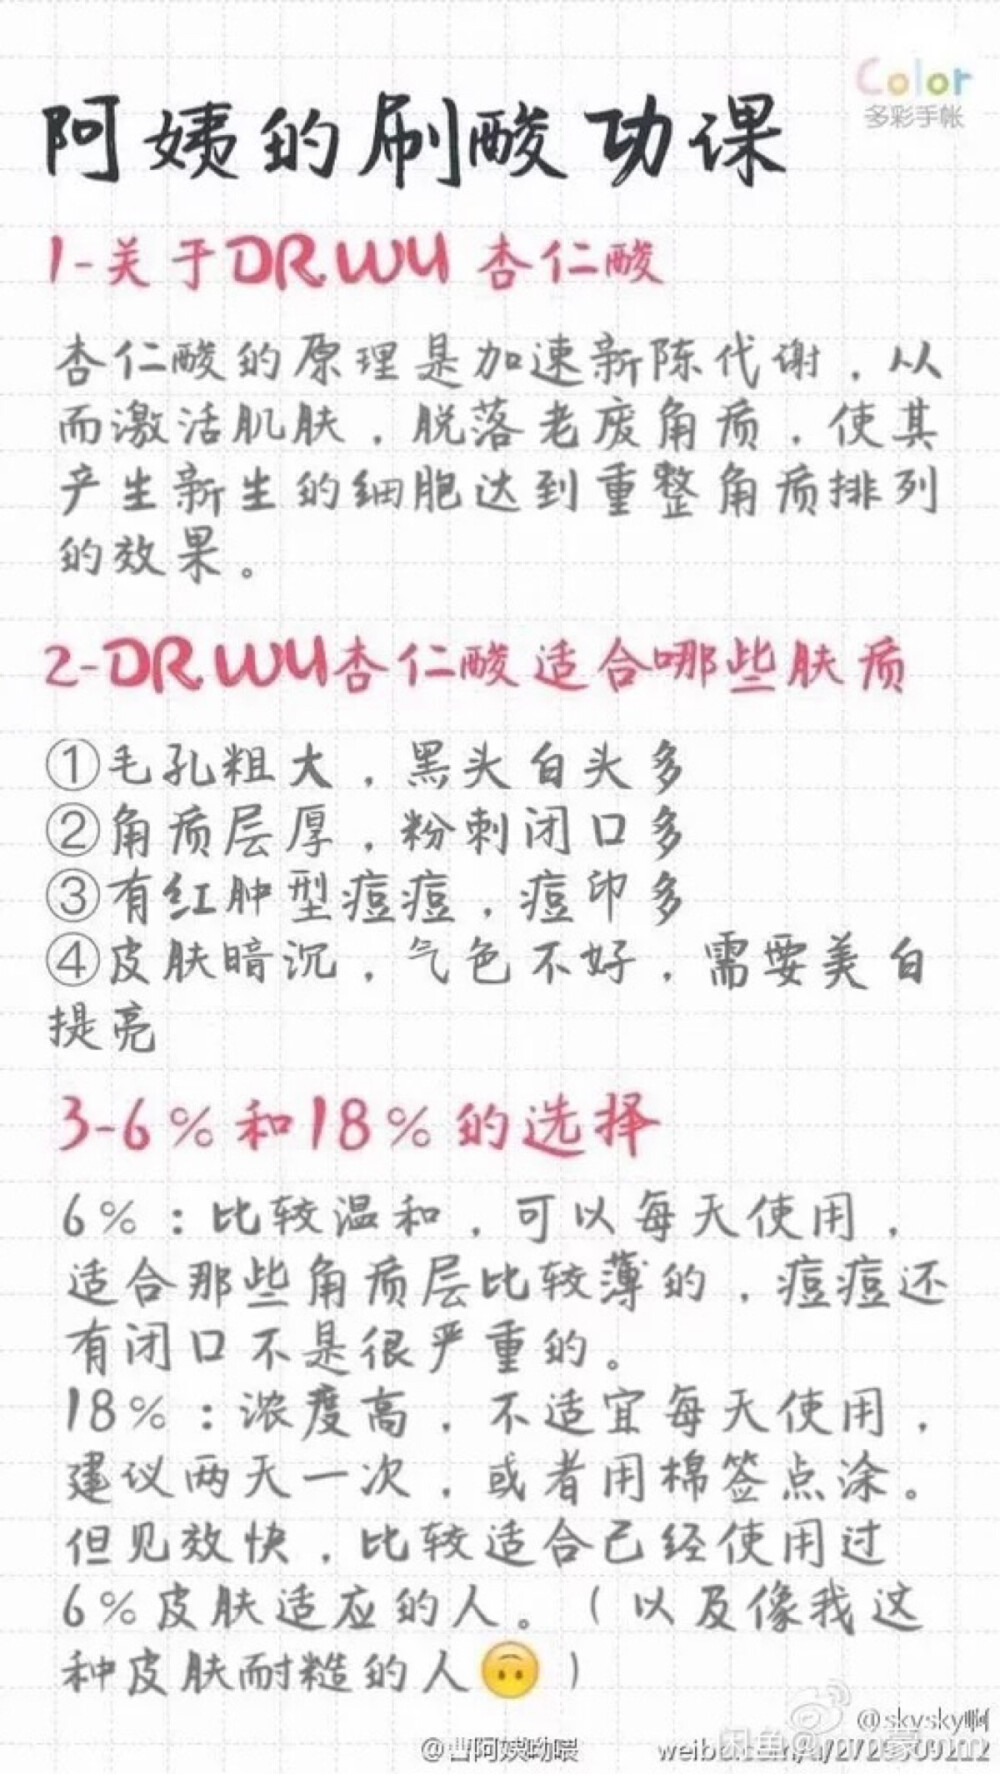 Color
多彩手帐
阿姨的刷酸功课
1-关于DR.WU 杏仁酸
杏仁酸的原理是加速新陈代谢，从
而激活肌肤，脱落老废角质，使其
产生新生的细胞达到重整角质排列
的效果。
2-DR.WU杏仁酸适合哪些肤质
①毛孔粗大，黑头白头多
②角质层厚，粉刺闭口多
③有红肿型痘痘，痘印多
④皮肤暗沉，气色不好，需要美白
提亮
3-6%和18%的选择
6%：比较温和，可以每天使用，
适合那些角质层比较薄的，痘痘还
有闭口不是很严重的。
18%：浓度高，不适宜每天使用，
建议两天一次，或者用棉签点涂。
但见效快，比较适合已经使用过
6%皮肤适应的人。（以及像我这
种皮肤耐糙的人🙃）
@skysky啊
@曹阿姨呦喂